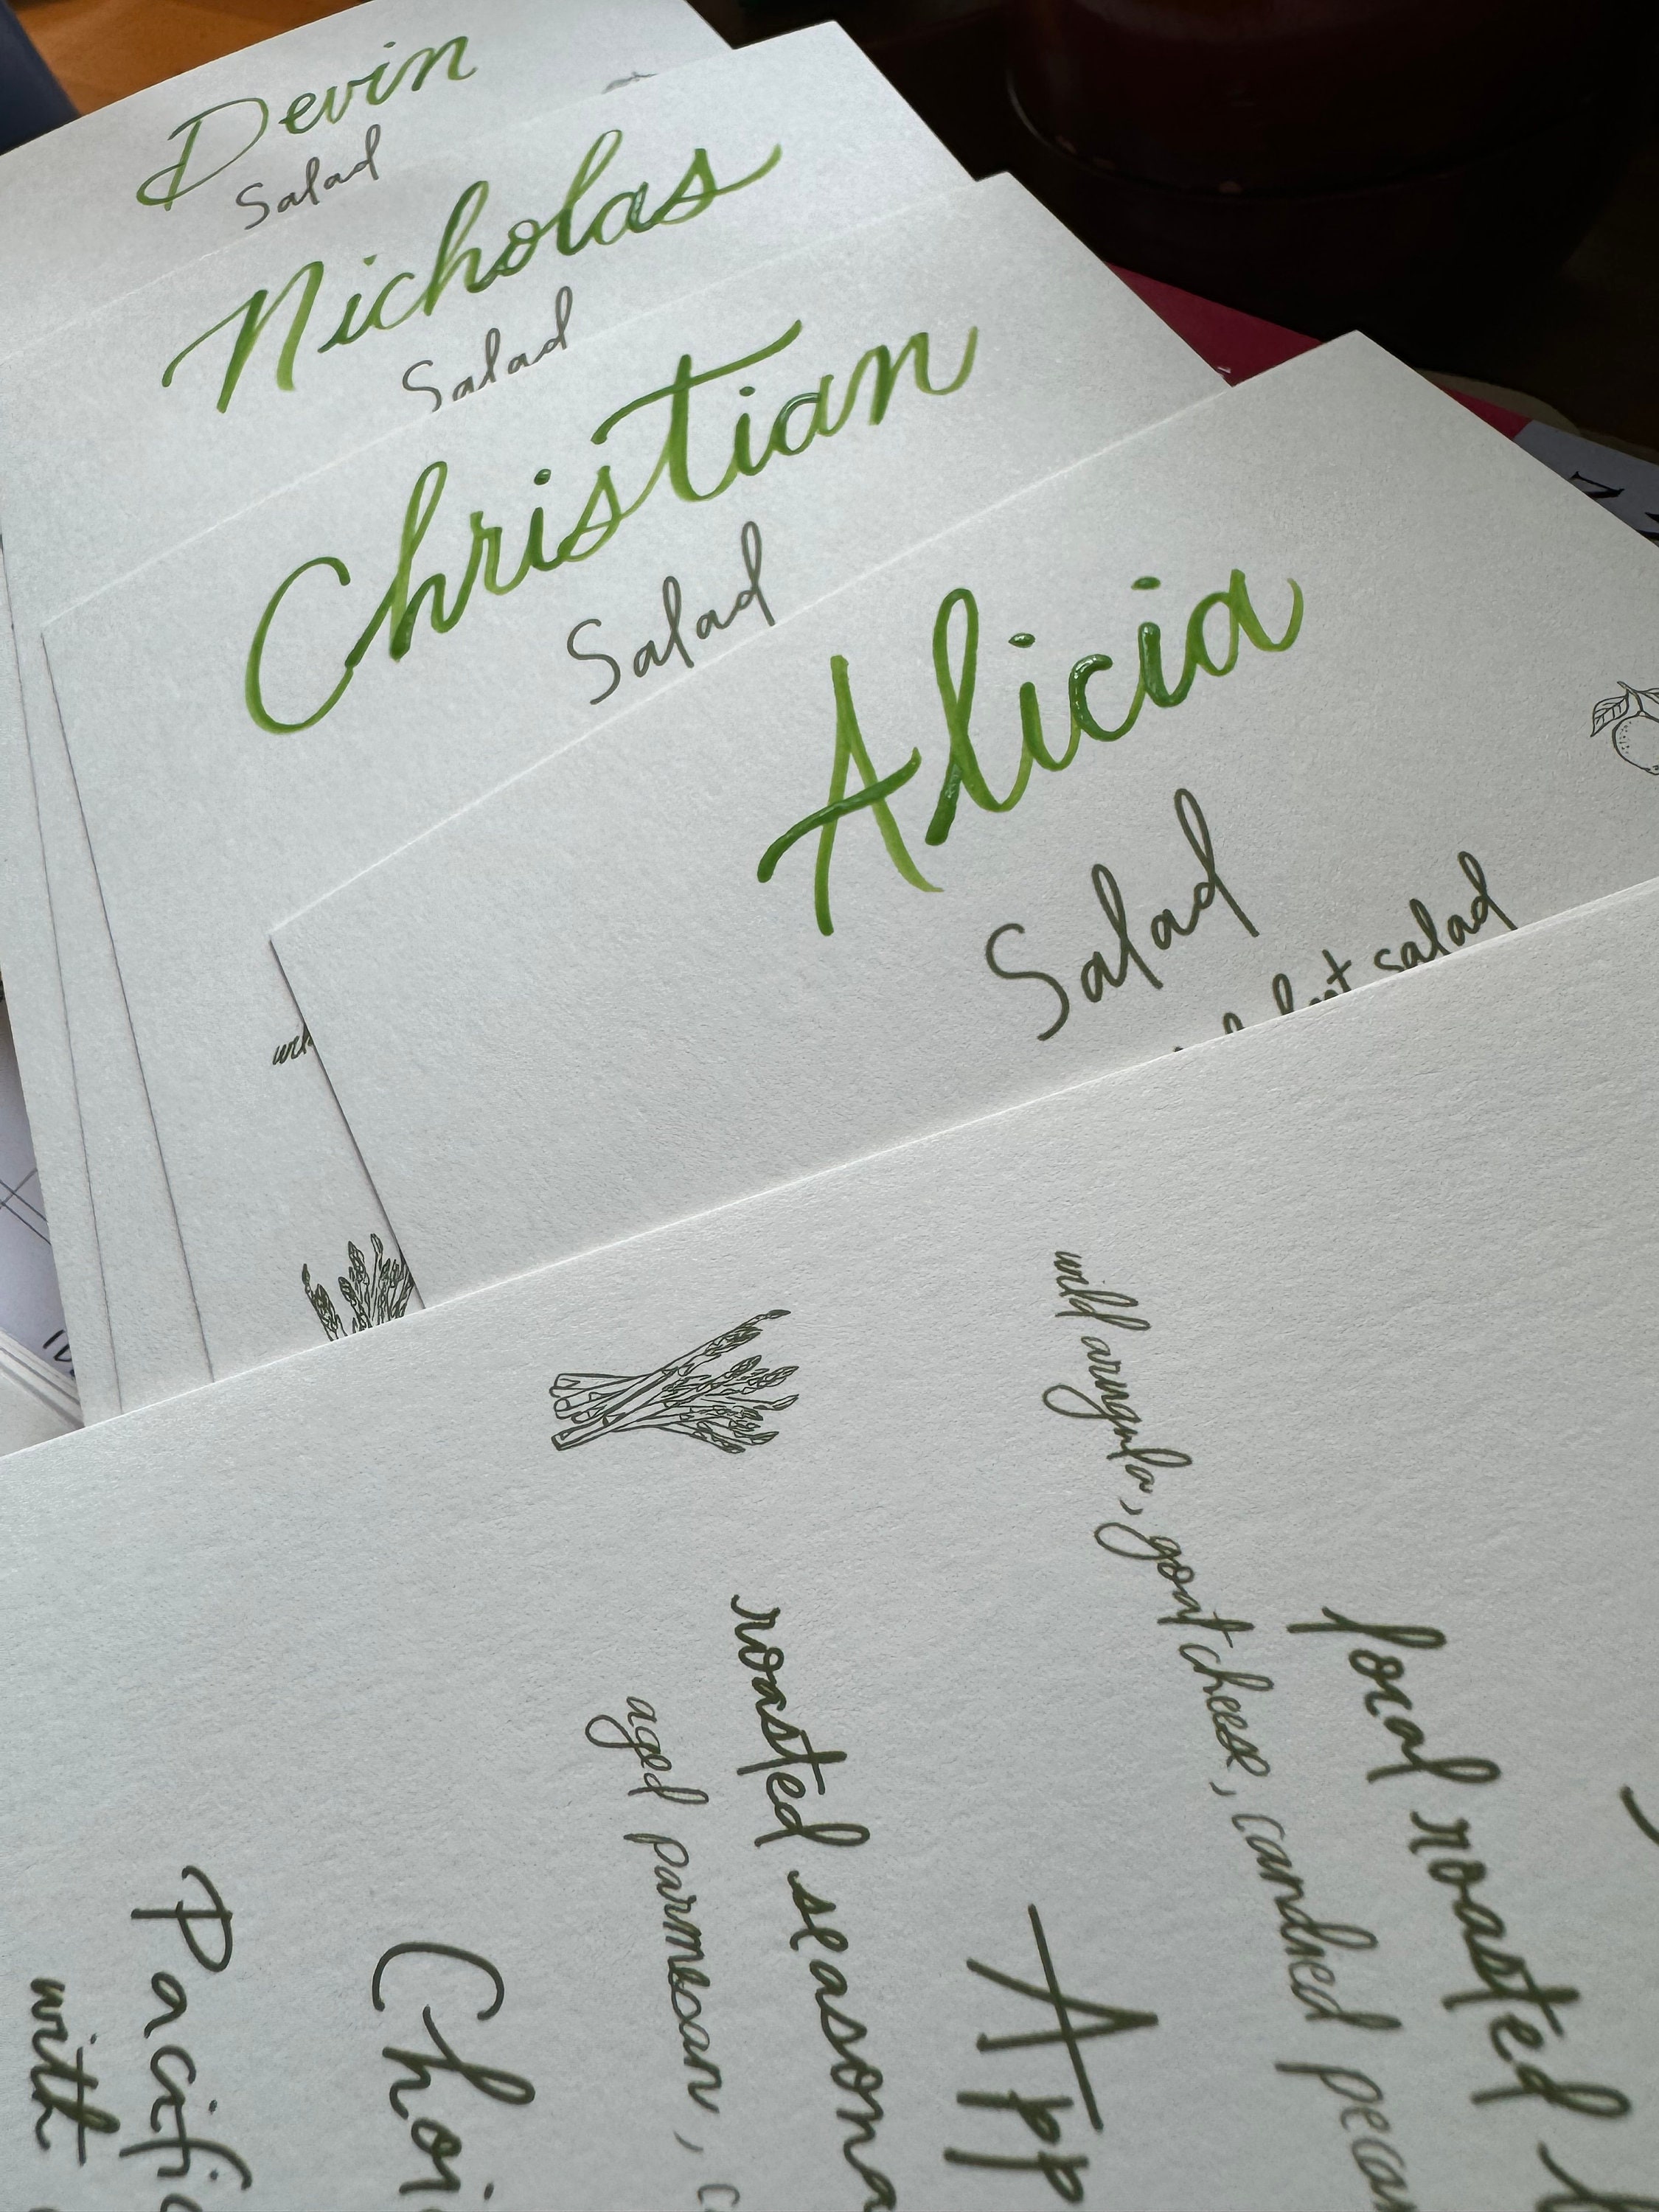 Devin
Salad
Nicholas
Salad
Christian
Salad
Alicia
Salad
salad
local roasted
wild arugula, goat cheese, candied
roasted
aged parmesan,
with